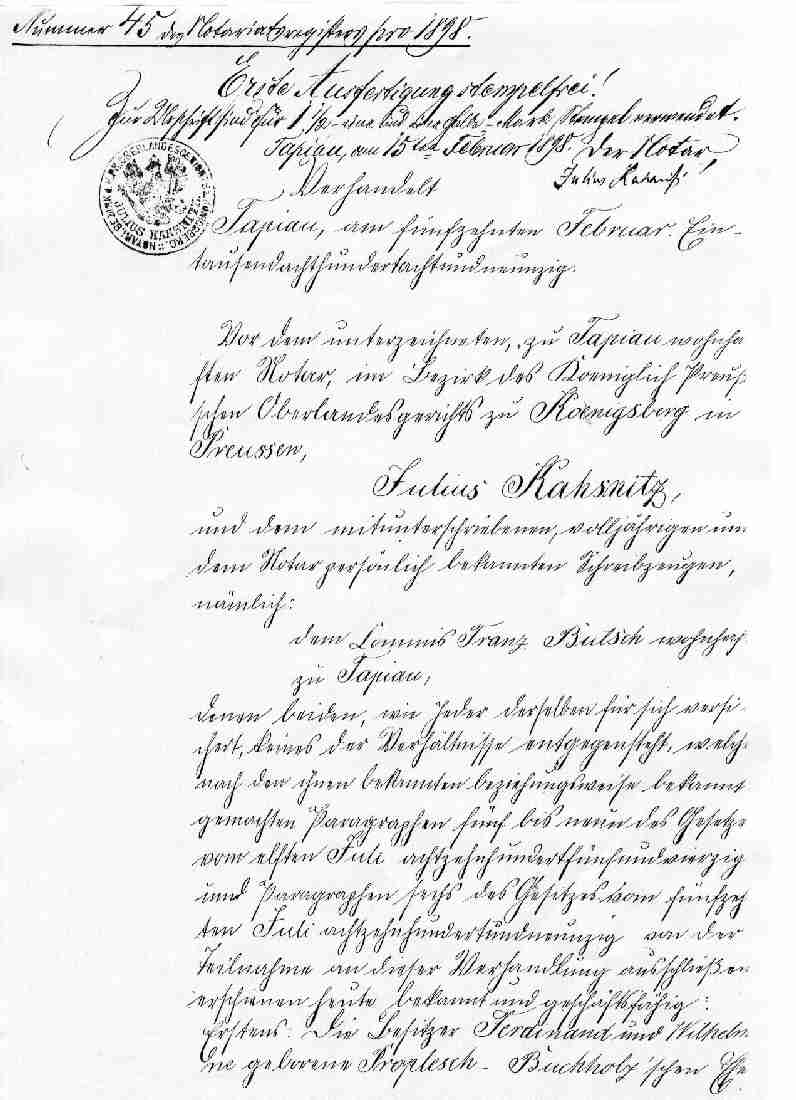 Nummer 45 des Notariatsregisters pro 1898.
Erste Ausfertigung stempelfrei!
Zur Urschrift sind für 1 1/2 - eine und eine halbe - Mark Stempel verwendet.
Tapiau, am 15ten Februar 1898. Der Notar,
Julius Kahsnitz
Verhandelt
Tapiau, am fünfzehnten Februar. Ein-
tausendachthundertachtundneunzig.
Vor dem unterzeichneten, zu Tapiau wohnha
ften Notar, im Bezirk des Koeniglich Preus-
schen Oberlandesgerichts zu Koenigsberg in
Preussen,
Julius Kahsnitz,
und dem mitunterschriebenen, volljährigen un
dem Notar persönlich bekannten Schreibzeugen,
nämlich:
dem Commis Franz Butsch wohnhaf
zu Tapiau,
denen beiden, wie Jeder derselben für sich versi-
chert, keines der Verhältnisse entgegensteht, welch
nach den ihnen bekannten beziehungsweise bekannt
gemachten Paragraphen fünf bis neun des Gesetze
vom elften Juli achtzehnhundertfünfundvierzig
und Paragraphen sechs des Gesetzes vom fünfzeh
ten Juli achtzehnhundertundneunzig von der
Teilnahme an dieser Verhandlung ausschließen
erschienen heute bekannt und geschäftsfähig:
Erstens: Die Besitzer Ferdinand und Wilhelm
ne geborene Proplesch - Buchholz'schen Ehe